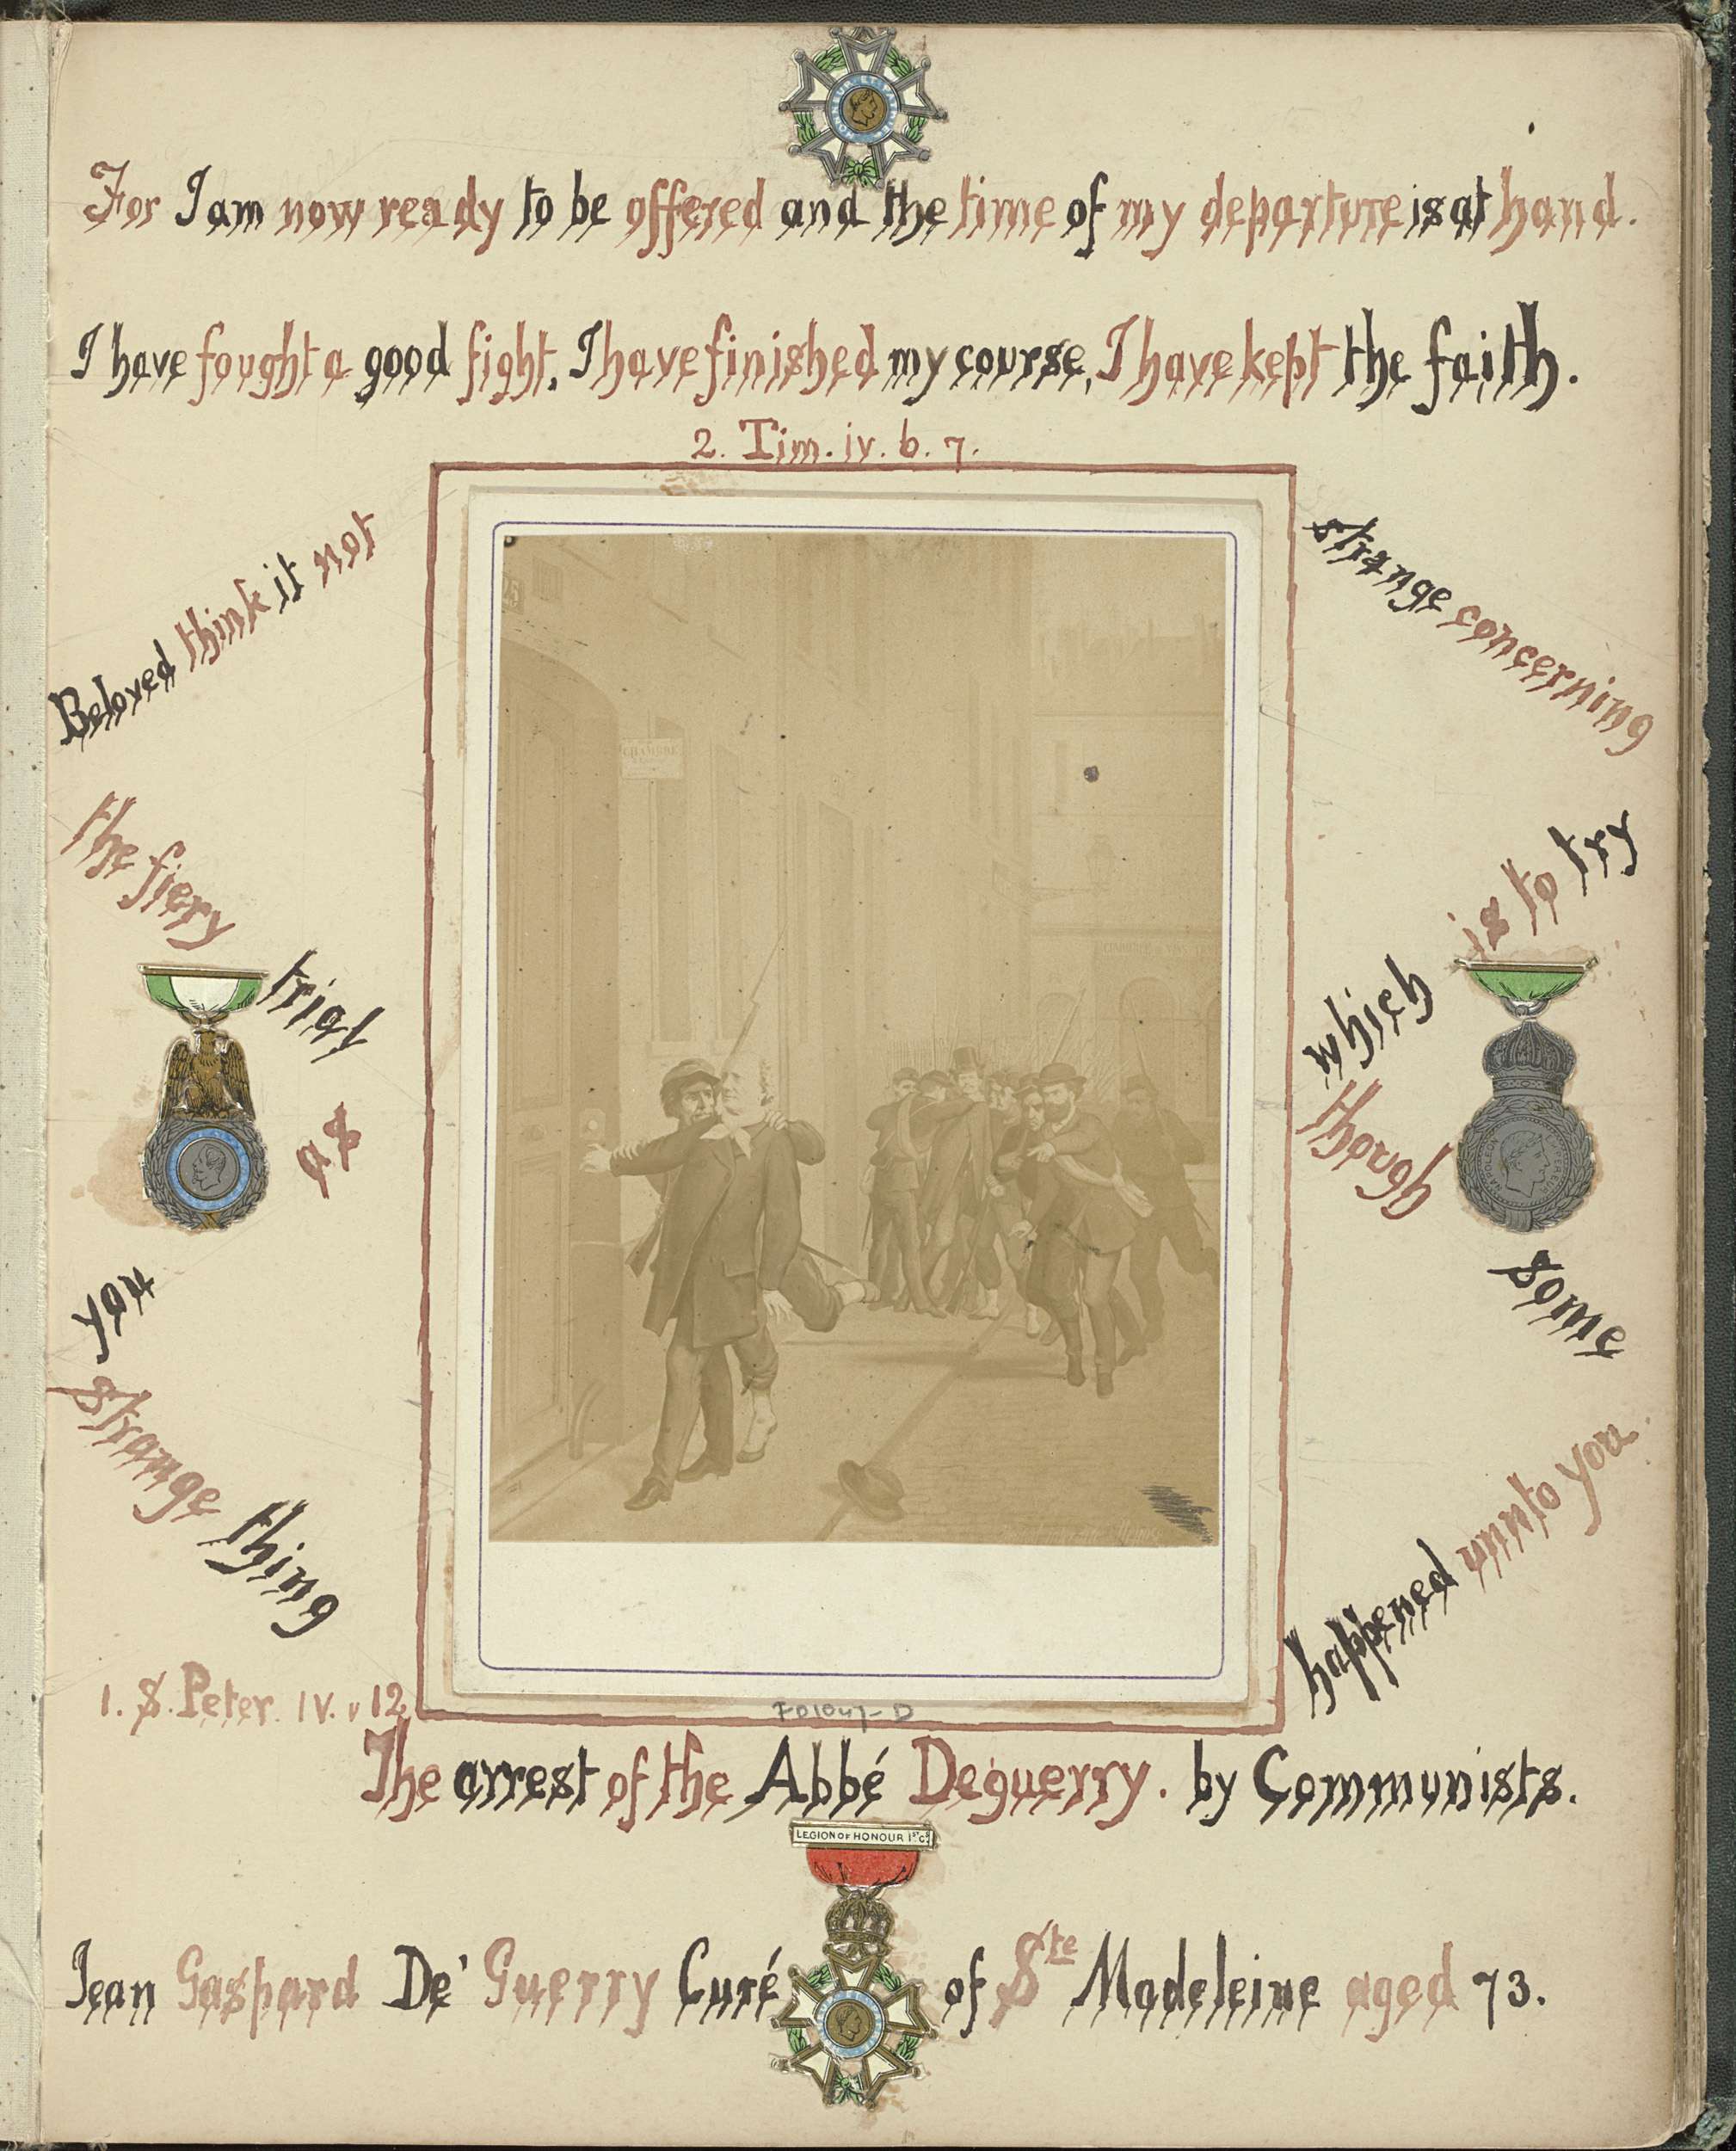 For I am now ready to be offered and the time of my departure is at hand.
I have fought a good fight, I have finished my course, I have kept the faith.
2. Tim. iv. 6. 7.
Beloved think it not
strange concerning
the fiery
trial
which
is to try
you
as
though
some
strange thing
happened unnto you.
1. S. Peter. IV. v 12
CHAMBRE
LEGION OF HONOUR 1ST CL
The arrest of the Abbé Deguerry. by Communists.
Jean Gaspard De' Guerry Curé of Ste Madeleine aged 73.